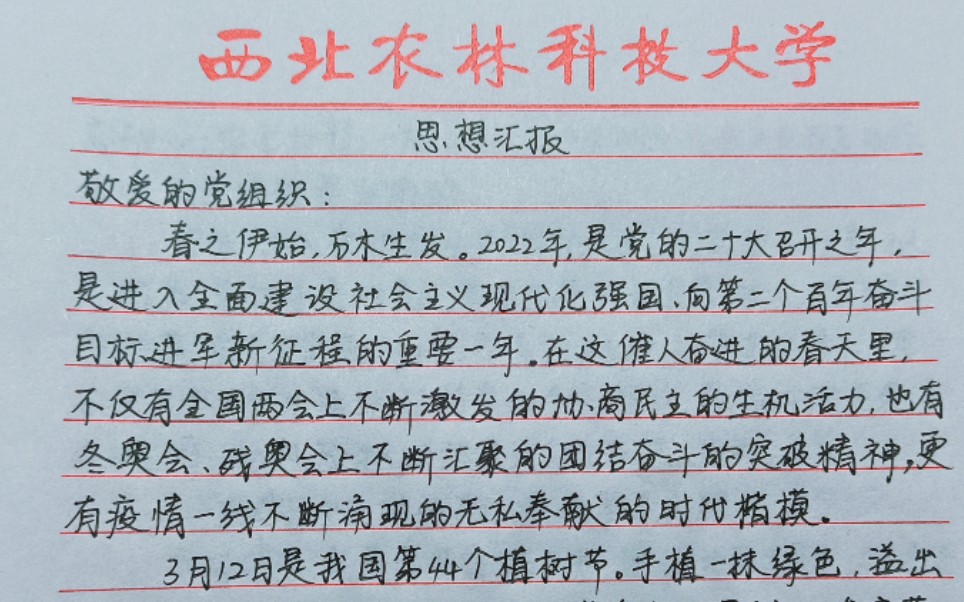 西北农林科技大学
思想汇报
敬爱的党组织：
春之伊始，万木生发。2022年，是党的二十大召开之年，
是进入全面建设社会主义现代化强国、向第二个百年奋斗
目标进军新征程的重要一年。在这催人奋进的春天里，
不仅有全国两会上不断激发的协商民主的生机活力，也有
冬奥会、残奥会上不断汇聚的团结奋斗的突破精神，更
有疫情一线不断涌现的无私奉献的时代楷模。
3月12日是我国第44个植树节。手植一抹绿色，溢出